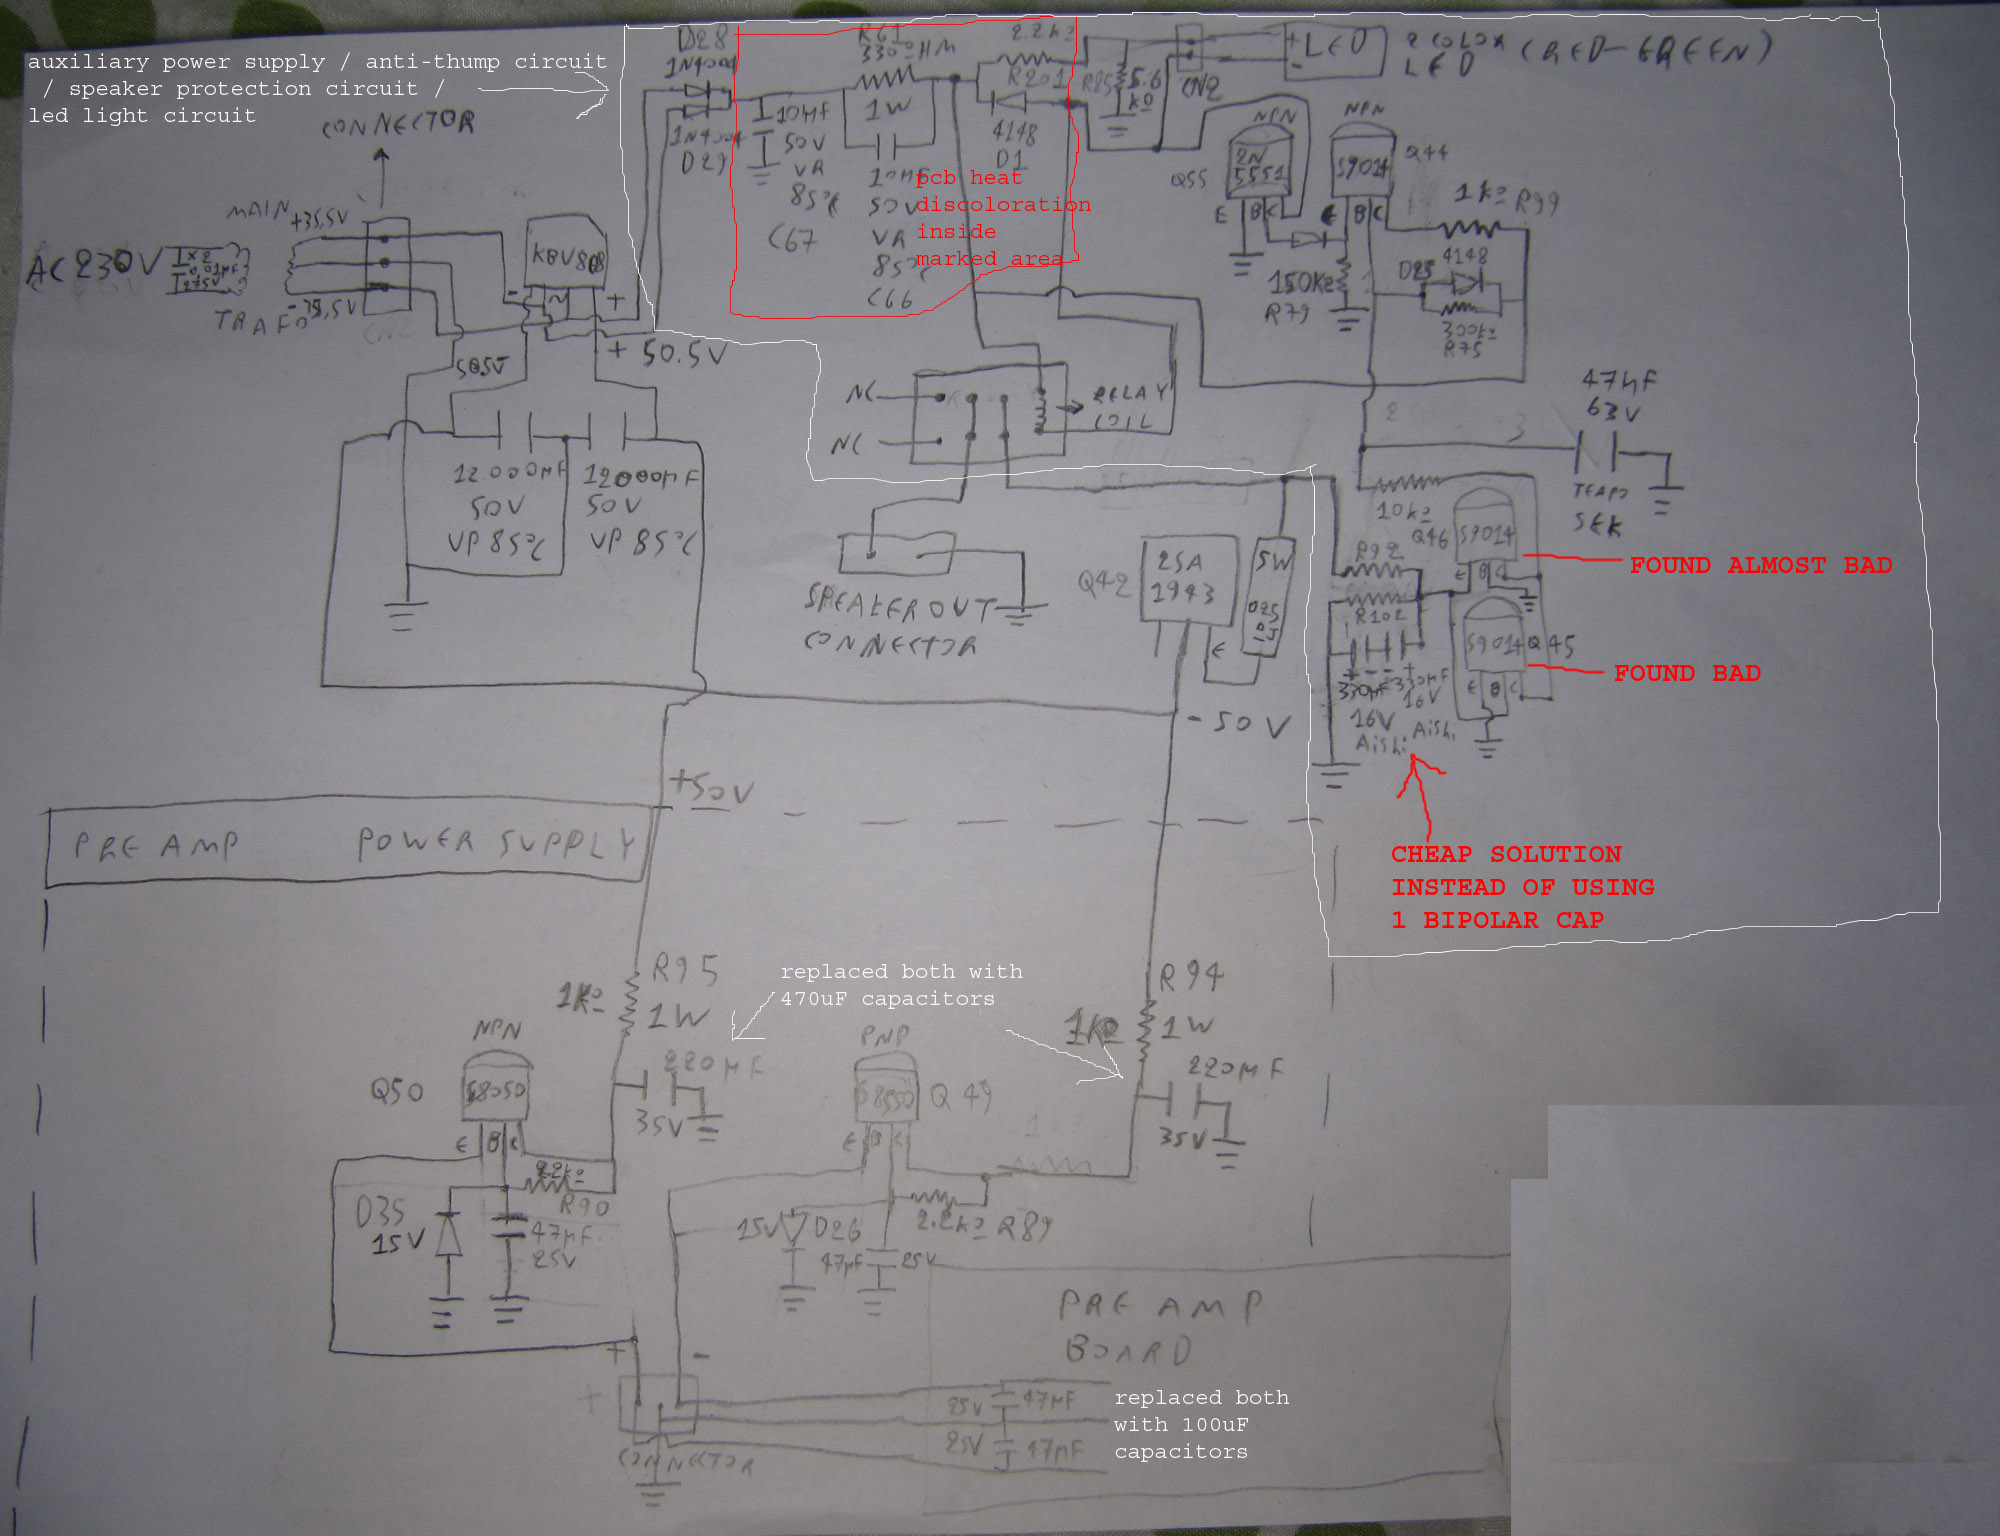 auxiliary power supply / anti-thump circuit
/ speaker protection circuit /
led light circuit
CONNECTOR
MAIN
+35,5V
AC 230V
275V
TRAFO
KBV808
-
~
+
+ 50.5V
D28
1N4004
1N4004
D29
10µF
50V
VA
85°C
C67
R61
330ΩHM
1W
10µF
50V
VA
85°C
C66
2.2kΩ
R201
4148
D1
pcb heat
discoloration
inside
marked area
R85
5.6
kΩ
CN2
+
-
LED
2 COLOR
LED
(RED-GREEN)
NPN
2N
5551
Q55
E B C
NPN
S9014
Q44
E B C
1kΩ R99
4148
D25
300kΩ
R75
150KΩ
R79
NC
NC
RELAY
COIL
47µF
63V
TEAPO
SEK
2
3
12.000µF
50V
VP 85°C
12000µF
50V
VP 85°C
SPEAKER OUT
CONNECTOR
Q42
2SA
1943
E
5W
10kΩ
Q46
S9014
E B C
FOUND ALMOST BAD
R92
R102
S9014
Q45
E B C
FOUND BAD
330µF
16V
Aishi
330µF
16V
Aishi
CHEAP SOLUTION
INSTEAD OF USING
1 BIPOLAR CAP
- 50 V
+50V
PRE AMP POWER SUPPLY
1KΩ
R95
1W
replaced both with
470uF capacitors
1KΩ
R94
1W
NPN
Q50
S8050
E B C
220µF
35V
PNP
S8550
Q49
E B C
220µF
35V
2.2kΩ
R90
D35
15V
47µF
25V
15V
D26
2.2kΩ R89
47µF
25V
+
-
+
CONNECTOR
PRE AMP
BOARD
25V
47µF
25V
47µF
replaced both
with 100uF
capacitors